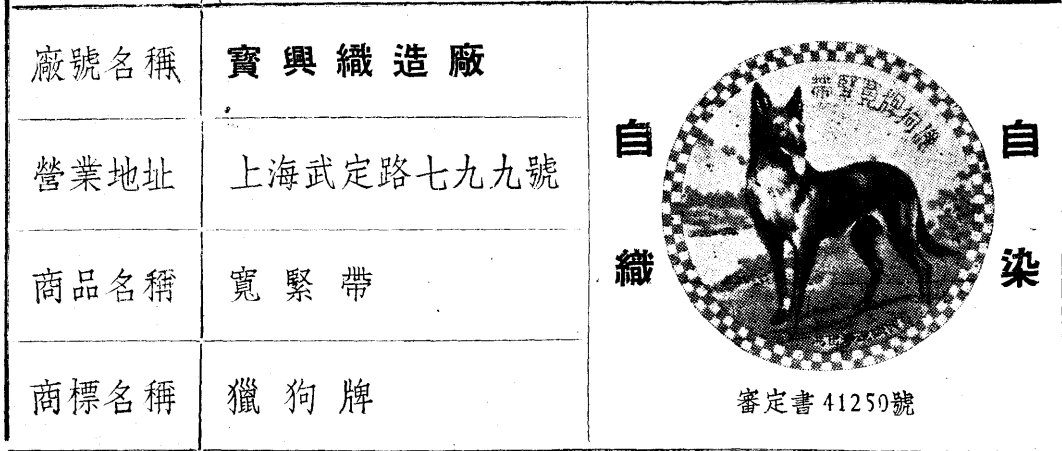 廠號名稱 寳興織造廠
營業地址 上海武定路七九九號
商品名稱 寬緊帶
商標名稱 獵狗牌
自織
自染
帶緊寬牌狗獵
審定書41250號